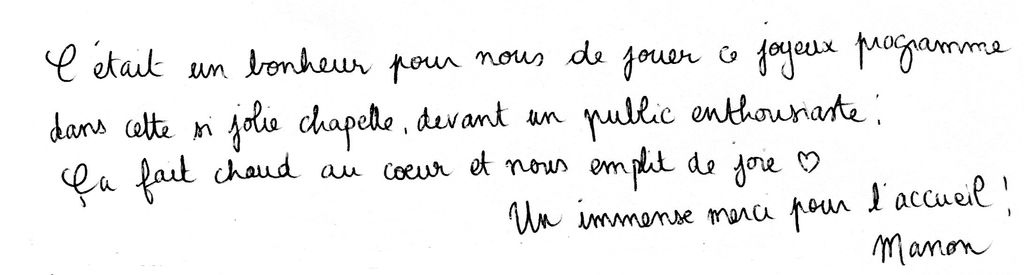 C'était un bonheur pour nous de jouer ce joyeux programme
dans cette si jolie chapelle, devant un public enthousiaste !
Ça fait chaud au coeur et nous emplit de joie ♡
Un immense merci pour l'accueil !
Manon